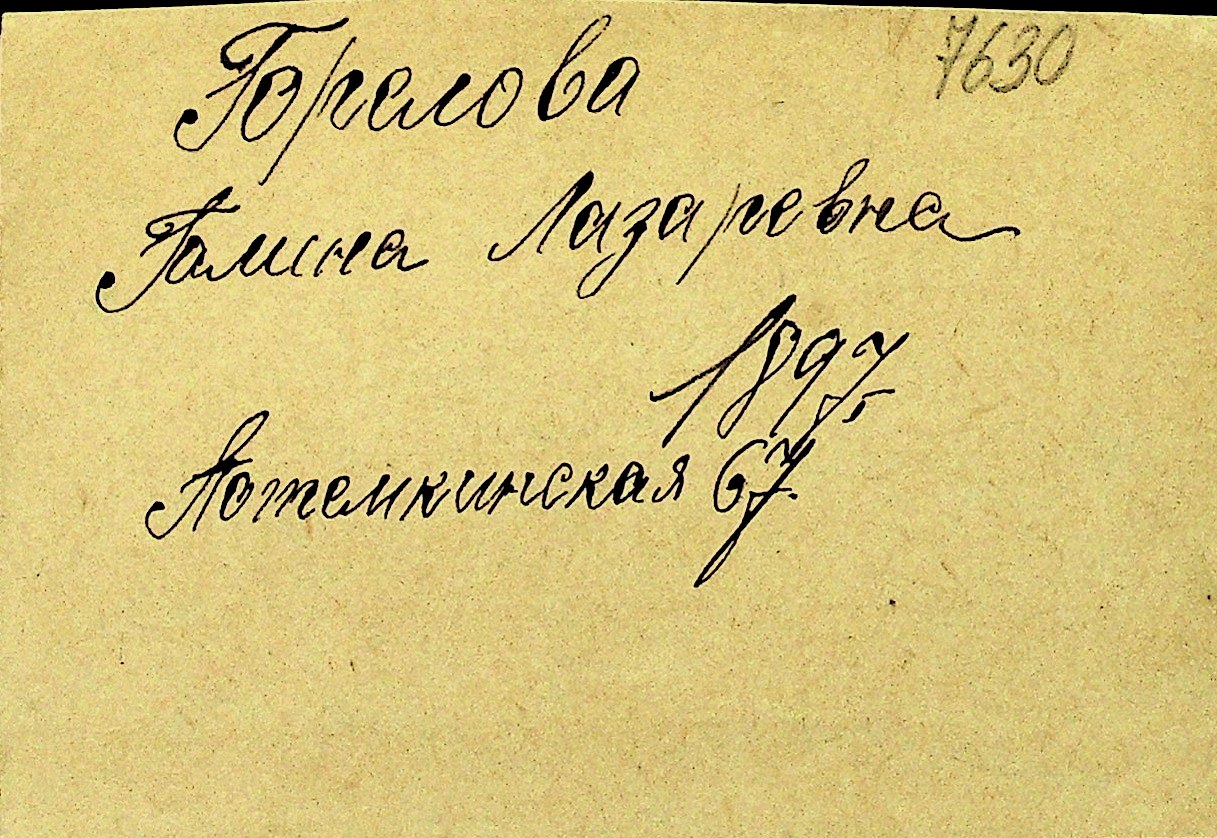 7630
Горелова
Галина Лазаревна
1897
Потемкинская 67